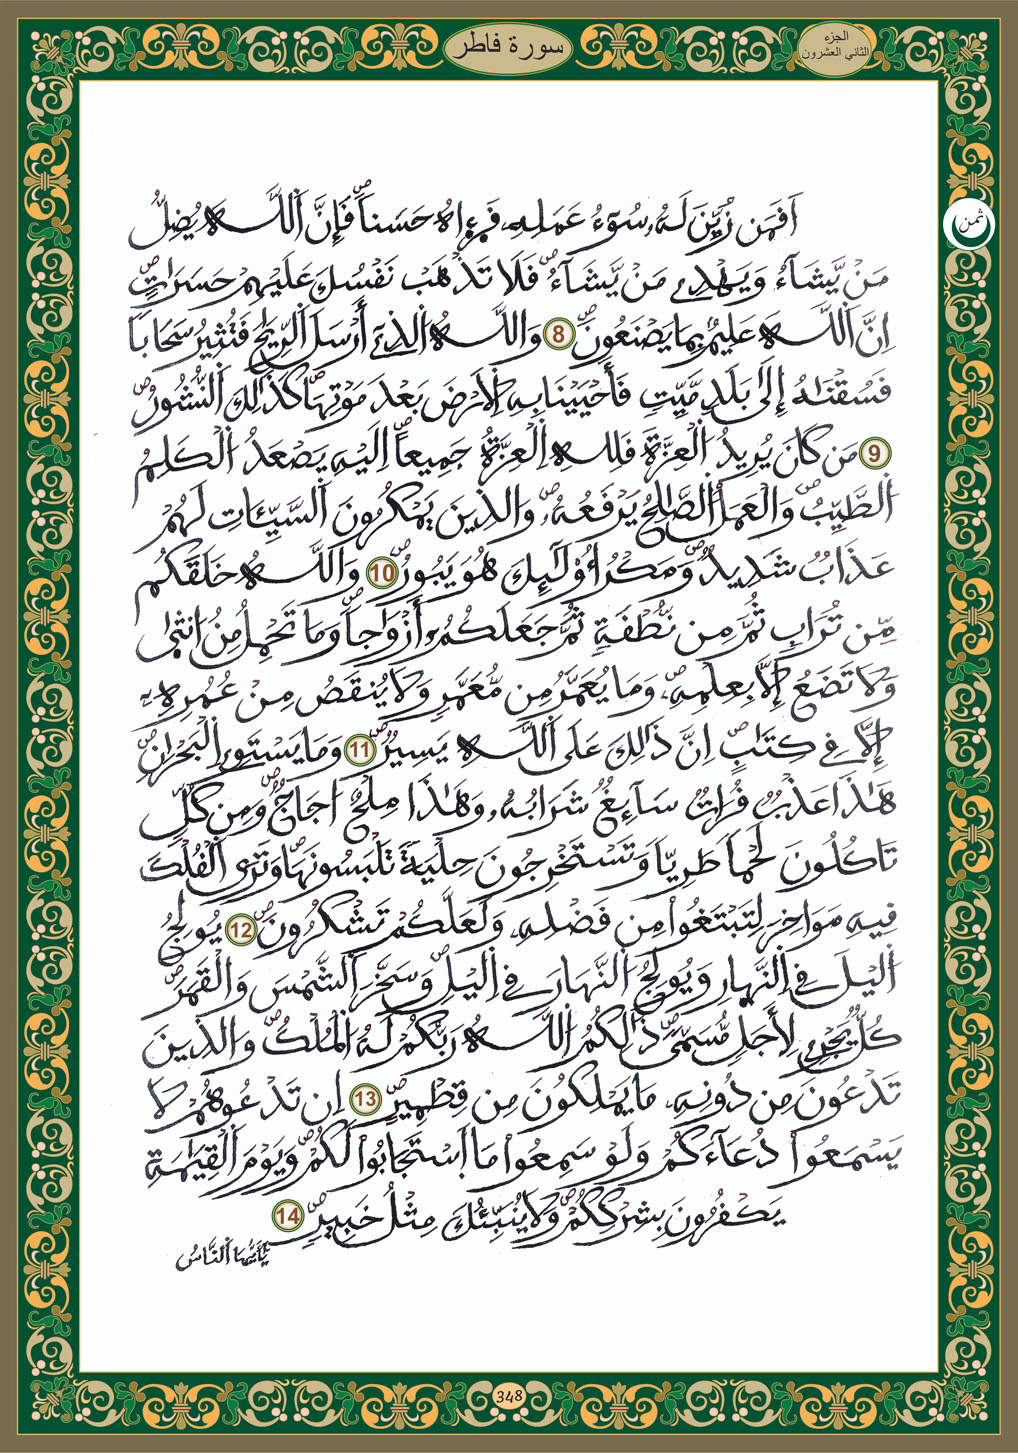 سورة فاطر
الجزء
الثاني العشرون
ثمن
اَفَمَن زُيِّنَ لَهُۥ سُوٓءُ عَمَلِهِۦ فَرَءِاهُ حَسَناٗۖ فَإِنَّ اَللَّهَ يُضِلُّ
مَنْ يَّشَآءُ وَيَهْدِے مَنْ يَّشَآءُۖ فَلَا تَذْهَبْ نَفْسُكَ عَلَيْهِمْ حَسَرَٰتٍۖ
اِنَّ اَللَّهَ عَلِيمُۢ بِمَا يَصْنَعُونَۖ 8 وَاللَّهُ اُلذِےٓ أَرْسَلَ اَلرِّيَٰحَ فَتُثِيرُ سَحَاباٗ
فَسُقْنَٰهُ إِلَىٰ بَلَدٖ مَّيِّتٖ فَأَحْيَيْنَا بِهِ اِلَارْضَ بَعْدَ مَوْتِهَاۖ كَذَٰلِكَ اَلنُّشُورُۖ
9 مَن كَانَ يُرِيدُ اُلْعِزَّةَ فَلِلهِ اِلْعِزَّةُ جَمِيعاًۖ اِلَيْهِ يَصْعَدُ اُلْكَلِمُ
اُلطَّيِّبُۖ وَالْعَمَلُ اُلصَّٰلِحُ يَرْفَعُهُۥۖ وَالذِينَ يَمْكُرُونَ اَلسَّيِّـَٔاتِ لَهُمْ
عَذَابٞ شَدِيدٞۖ وَمَكْرُ أُوْلَٰٓئِكَ هُوَ يَبُورُۖ 10 وَاللَّهُ خَلَقَكُم
مِّن تُرَابٖ ثُمَّ مِن نُّطْفَةٖ ثُمَّ جَعَلَكُمُۥٓ أَزْوَٰجاٗۖ وَمَا تَحْمِلُ مِنُ ا۟نث۪ىٰ
وَلَا تَضَعُ إِلَّا بِعِلْمِهِۦۖ وَمَا يُعَمَّرُ مِن مُّعَمَّرٖ وَلَا يُنقَصُ مِنْ عُمُرِهِۦٓ
إِلَّا فِے كِتَٰبٍۖ اِنَّ ذَٰلِكَ عَلَى اَللَّهِ يَسِيرٞۖ 11 وَمَا يَسْتَوِے اِلْبَحْرَٰنِۖ
هَٰذَا عَذْبٞ فُرَاتٞ سَآئِغٞ شَرَابُهُۥ وَهَٰذَا مِلْحٌ ا۟جَاجٞۖ وَمِن كُلّٖ
تَاكُلُونَ لَحْماٗ طَرِيّاٗ وَتَسْتَخْرِجُونَ حِلْيَةٗ تَلْبَسُونَهَاۖ وَتَرَى اَلْفُلْكَ
فِيهِ مَوَاخِرَ لِتَبْتَغُواْ مِن فَضْلِهِۦ وَلَعَلَّكُمْ تَشْكُرُونَۖ 12 يُولِجُ
اُليْلَ فِے اِلنَّهَارِ وَيُولِجُ اُلنَّهَارَ فِے اِليْلِۖ وَسَخَّرَ اَلشَّمْسَ وَالْقَمَرَۖ
كُلّٞ يَجْرِے لِأَجَلٖ مُّسَمّىٗۖ ذَٰلِكُمُ اُللَّهُ رَبُّكُمْ لَهُ اُلْمُلْكُۖ وَالذِينَ
تَدْعُونَ مِن دُونِهِۦ مَا يَمْلِكُونَ مِن قِطْمِيرٍۖ 13 اِن تَدْعُوهُمْ لَا
يَسْمَعُواْ دُعَآءَكُمْ وَلَوْ سَمِعُواْ مَا اَسْتَجَابُواْ لَكُمْۖ وَيَوْمَ اَلْقِيَٰمَةِ
يَكْفُرُونَ بِشِرْكِكُمْۖ وَلَا يُنَبِّئُكَ مِثْلُ خَبِيرٖۖ 14
يَٰٓأَيُّهَا اَلنَّاسُ
348